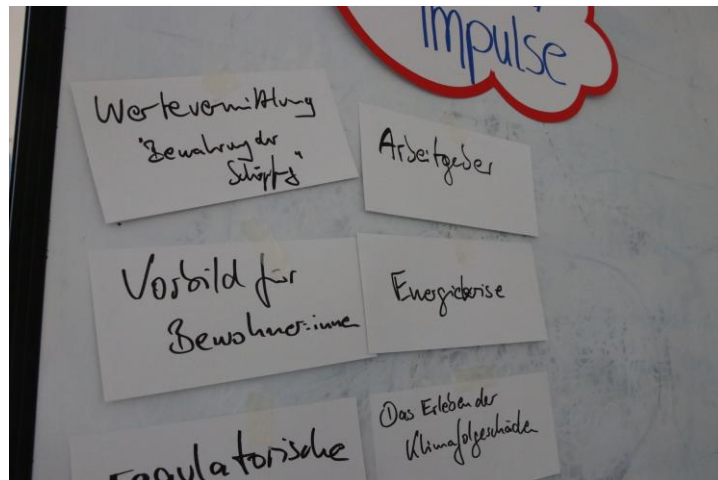 Impulse
Wertevermittlung
"Bewahrung der
Schöpfung"
Arbeitgeber
Vorbild für
Bewohner:innen
Energiekrise
Das Erleben der
Klimafolgeschäden